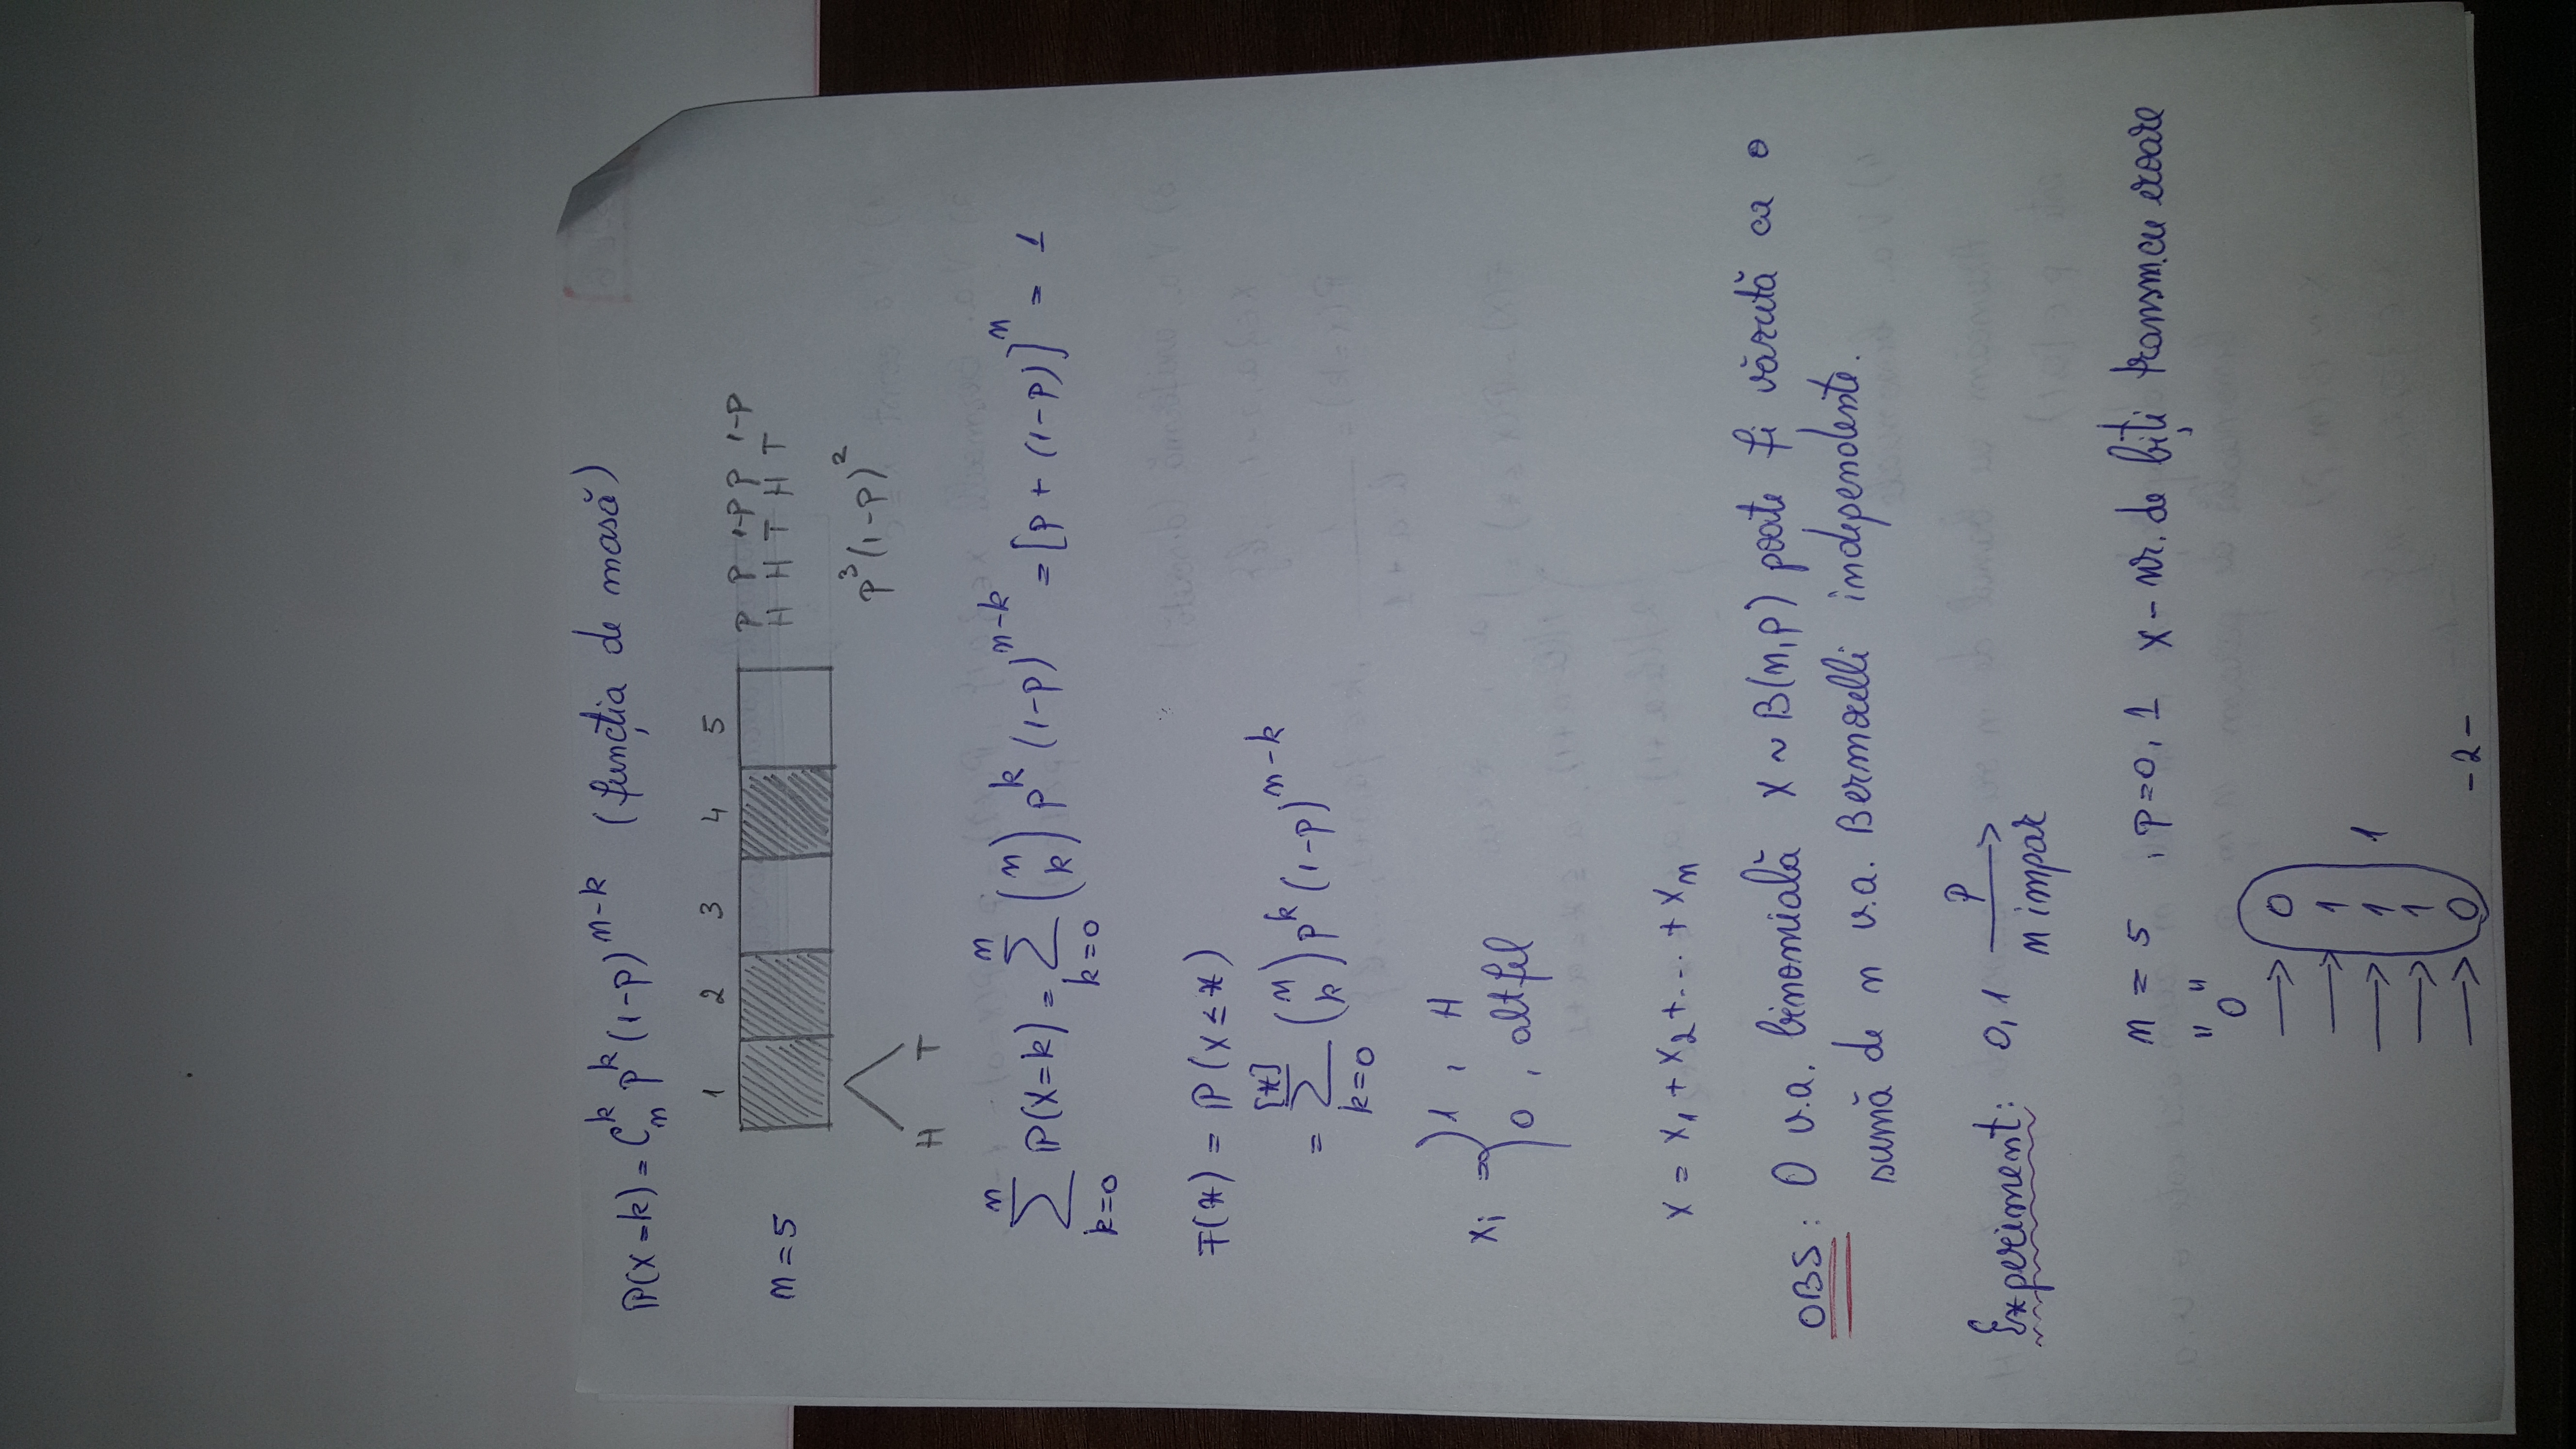 P(X=k) = C_n^k p^k (1-p)^{n-k} (funcția de masă)
1 2 3 4 5
n = 5
p p 1-p p 1-p
H H T H T
p^3 (1-p)^2
H T
∑_{k=0}^{n} P(X=k) = ∑_{k=0}^{n} (n k) p^k (1-p)^{n-k} = [p + (1-p)]^n = 1
F(x) = P(X ≤ x)
= ∑_{k=0}^{[x]} (n k) p^k (1-p)^{n-k}
X_i = { 1 , H
0 , altfel
X = X_1 + X_2 + ... + X_n
OBS: O v.a. binomială X ~ B(n,p) poate fi văzută ca o
sumă de n v.a. Bernoulli independente.
Experiment: 0,1 →
p
n impar
n = 5 , p=0,1 X - nr. de biți transm. cu eroare
"0"
→ 0
→ 1
→ 1 1
→ 1
→ 0
-2-